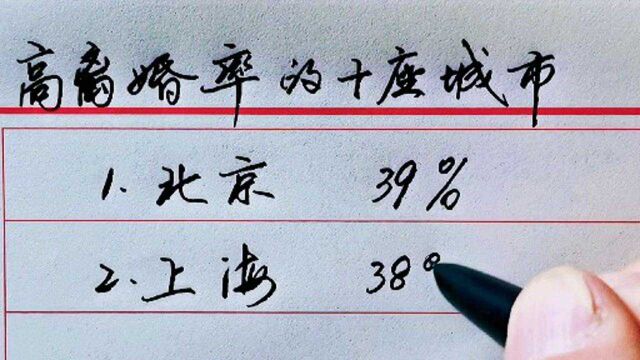 高离婚率的十座城市
1.北京 39%
2.上海 38°